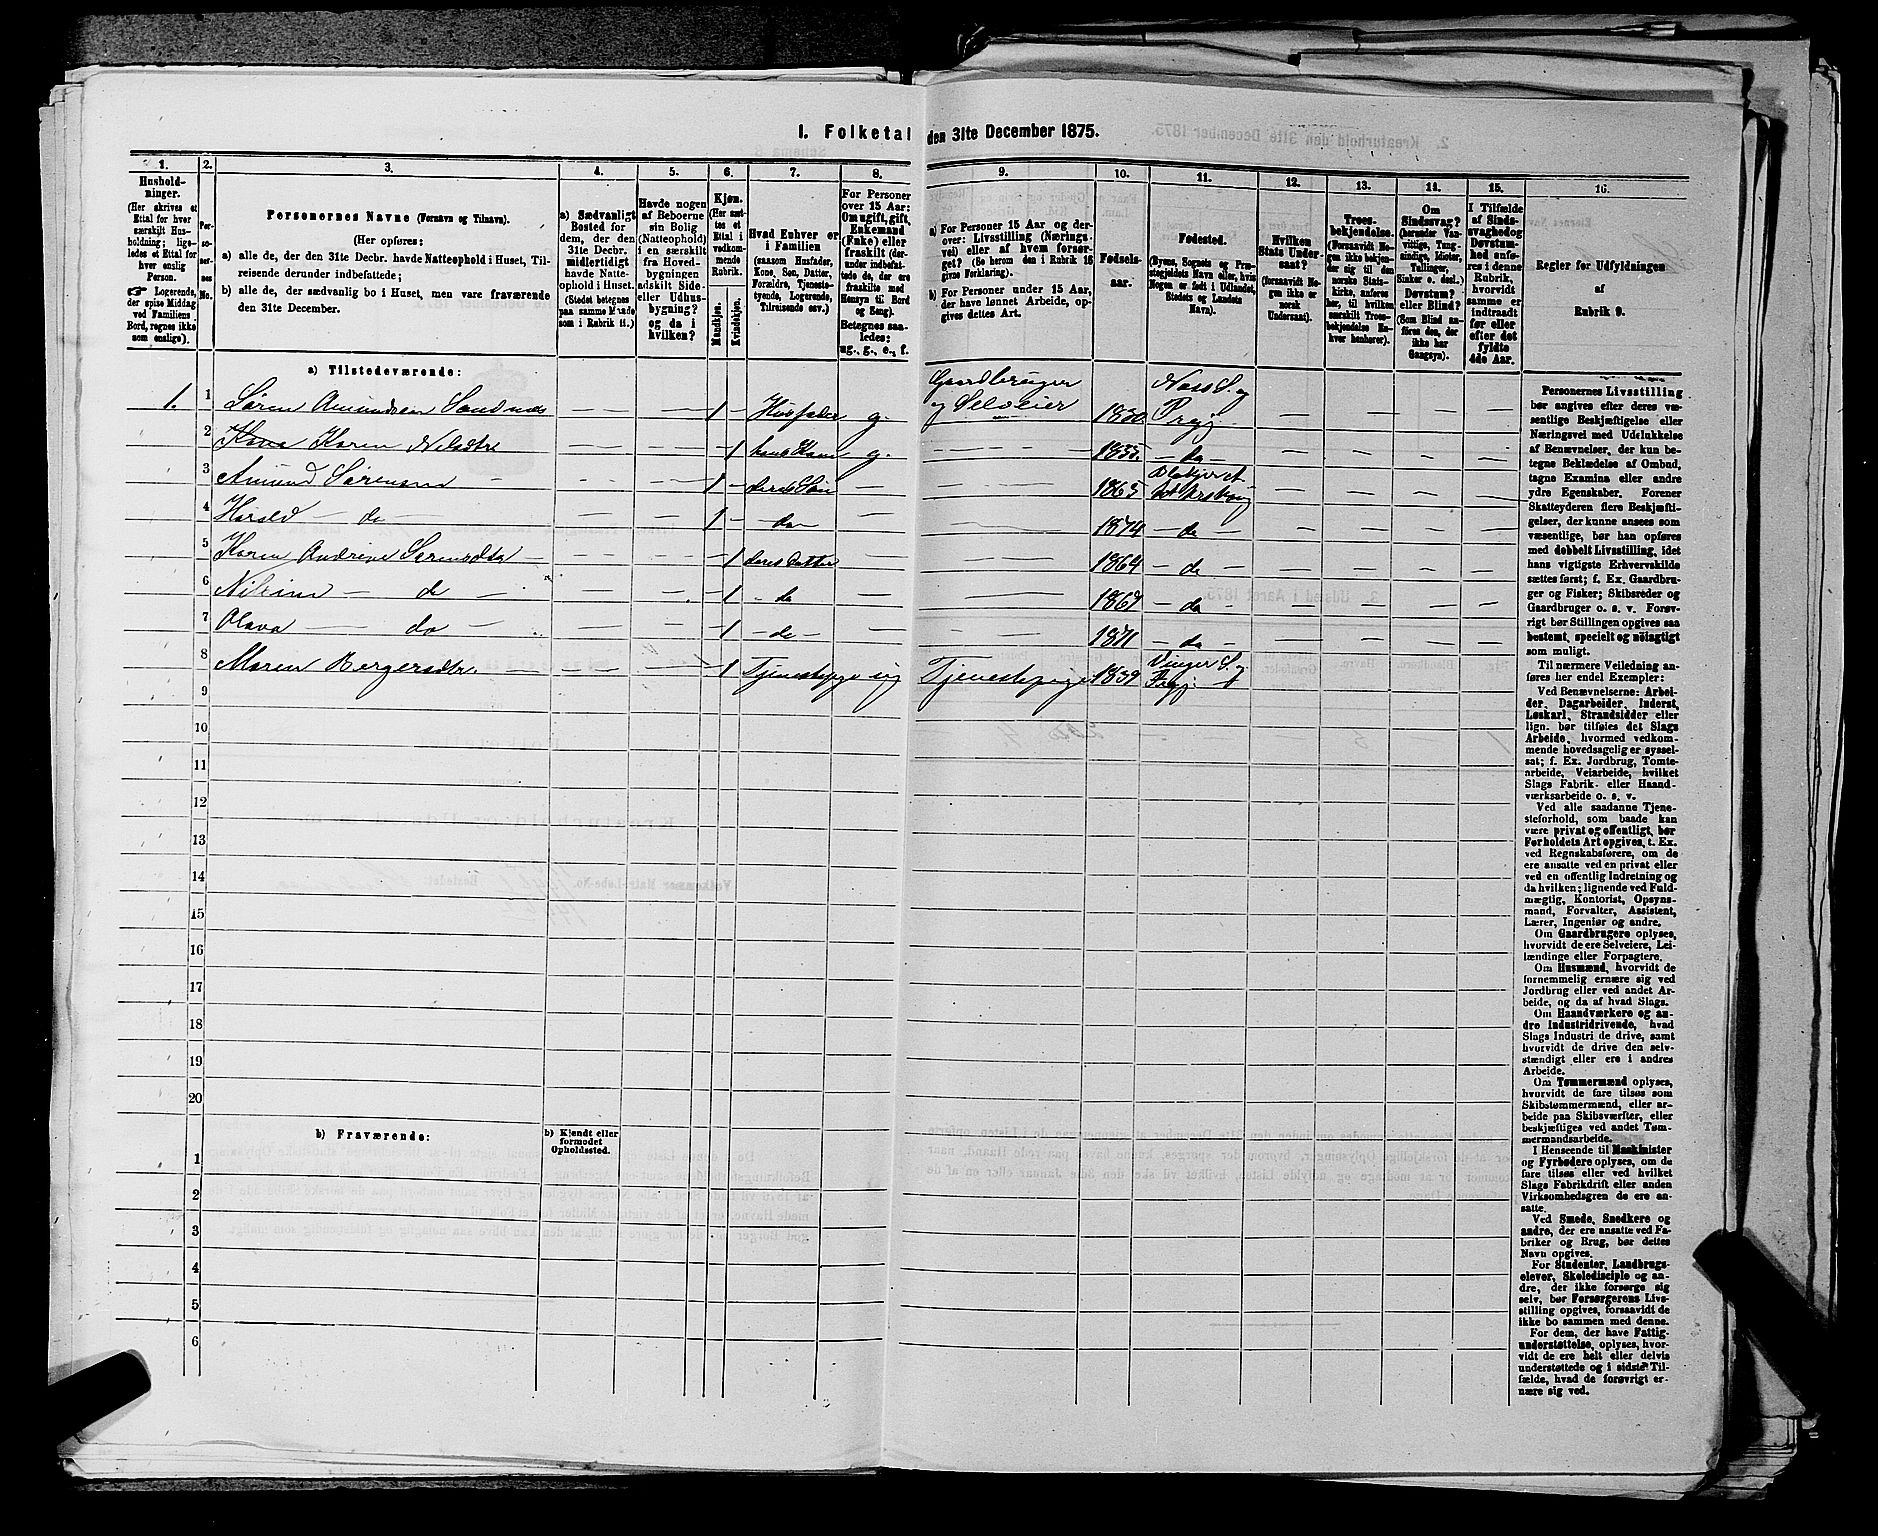 1. Folketal den 31te December 1875.
1.
2.
3.
4.
5.
6.
7.
8.
9.
10.
11.
12.
13.
14.
15.
16.
Husholdninger.
(Her skrives et
Ettal for hver
særskilt Husholdning;
ligeledes et Ettal for
hver enslig
Person.
☞ Logerende,
der spise Middag
ved Familiens
Bord, regnes ikke
som enslige).
Personernes No.
Personernes Navne (Fornavn og Tilnavn).
(Her opføres:
a) alle de, der den 31te Decbr. havde Natteophold i Huset, Tilreisende derunder indbefattede;
b) alle de, der sædvanlig bo i Huset, men vare fraværende
den 31te December.
a) Sædvanligt
Bosted for
dem, der den
31te Decbr.
midlertidigt
havde Natteophold i Huset.
(Stedet betegnes
paa samme Maade
som i Rubrik 11.)
Havde nogen
af Beboerne
sin Bolig
(Natteophold)
i en særskilt
fra Hovedbygningen
adskilt Side-
eller Udhusbygning?
og da i
hvilken?
Kjøn.
(Her sættes et
Ettal i
vedkommende
Rubrik.
Mandkjøn.
Kvindekjøn.
Hvad Enhver er
i Familien
(saasom Husfader,
Kone, Søn, Datter,
Forældre, Tjenestetyende, Logerende,
Tilreisende osv.)
For Personer
over 15 Aar:
Om ugift, gift,
Enkemand
(Enke) eller
fraskilt (derunder indbefattede de, der ere
fraskilte med
Hensyn til Bord
og Seng).
Betegnes saaledes:
ug., g., e., f.
a) For Personer 15 Aar og derover: Livsstilling (Næringsvei) eller af hvem forsørget? (Se herom den i Rubrik 16
givne Forklaring).
b) For Personer under 15 Aar,
der have lønnet Arbeide, opgives dettes Art.
Fødselsaar.
Fødested.
(Byens, Sognets og Præstegjeldets Navn eller, hvis
Nogen er født i Udlandet,
Stedets og Landets
Navn).
Hvilken
Stats Undersaat?
(forsaavidt Nogen ikke er
norsk
Undersaat).
Troesbekjendelse.
(Forsaavidt Nogen ikke bekjender sig til den
norske Statskirke, anføres
her, til hvilken
særskilt Troesbekjendelse Enhver henhører).
Om
Sindssvag?
(herunder Vanvittige, Tungsindige, Idioter,
Tullinger,
Sinker o. desl.)
Døvstum?
eller Blind?
(Som Blind anføres den, der
ikke har
Gangsyn).
I Tilfælde
af Sindssvaghed og
Døvstumhed anføres i denne
Rubrik,
hvorvidt
samme er
indtraadt
før eller
efter det
fyldte
4de Aar.
Regler for Udfyldningen
af
Rubrik 9.
a) Tilstedeværende:
1. 1 Søren Amundsen Sandnæs — — 1 - Husfader g. Gaardbruger og Selveier 1830 Næss S. og Prgj.
2 Karen Nilsdtr — — - 1 hans Kone g. — da
3 Amund Sørensen — — 1 - deres Søn — 1863
4 Harald — do — — — 1 - — do — — 1874 — do
5 Karen Andrine Sørensdtr — — — - 1 deres Datter — 1864 — do
6 — do — — — - 1 — do — 1867 — do
7 Olava — do — — — - 1 — do — — 1871 — do
8 Maren Bergersdtr. — — - 1 Tjenestepige ug Tjenestepige 1839 Vinger S. og Prgj.
9
10
11
12
13
14
15
16
17
18
19
20
b) Fraværende:
b) Kjendt eller
formodet
Opholdssted.
1
2
3
4
5
6
Personernes Livsstilling
bør angives efter deres væsentlige Beskjæftigelse eller
Næringsvei med Udelukkelse
af Benævnelser, der kun betegne Beklædelse af Ombud,
tagne Examina eller andre
ydre Egenskaber. Forener
Skatteyderen flere Beskjæftigelser, der kunne ansees som
væsentlige, bør han opføres
med dobbelt Livsstilling, idet
hans vigtigste Erhvervskilde
sættes først; f. Ex. Gaardbruger og Fisker; Skibsreder og
Gaardbruger o. s. v. Forøvrigt bør Stillingen opgives saa
bestemt, specielt og nøiagtigt
som muligt.
Til nærmere Veiledning anføres her endel Exempler:
Ved Benævnelserne: Arbeider, Dagarbeider, Inderst,
Løskarl, Strandsidder eller
lign. bør tilføies det Slags
Arbeide, hvormed vedkommende hovedsagelig er sysselsat; f. Ex. Jordbrug, Tomtearbeide, Veiarbeide, hvilket
Slags Fabrik- eller Haandværksarbeide o. s. v.
Ved alle saadanne Tjenesteforhold, som baade kan
være privat og offentligt, bør
Forholdets Art opgives, t. Ex.
ved Regnskabsførere, om de
ere ansatte ved en privat eller
ved en offentlig Indretning og
da hvilken; lignende ved Fuldmægtig, Kontorist, Opsynsmand, Forvalter, Assistent,
Lærer, Ingeniør og andre.
Om Gaardbrugere oplyses,
hvorvidt de ere Selveiere, Leilændinge eller Forpagtere.
Om Husmænd, hvorvidt de
fornemmelig ernære sig ved
Jordbrug eller ved andet Arbeide, og da af hvad Slags.
Om Haandværkere og andre Industridrivende, hvad
Slags Industri de drive, samt
hvorvidt de drive den selvstændigt eller ere i andres
Arbeide.
Om Tømmermænd oplyses,
hvorvidt de fare tilsøs som
Skibstømmermænd, eller arbeide paa Skibsværfter, eller
beskjæftiges ved andet Tømmermandsarbeide.
I Henseende til Maskinister
og Fyrbødere oplyses, om de
fare tilsøs eller ved hvilket
Slags Fabrikdrift eller anden
Virksomhedsgren de ere ansatte.
Ved Smede, Snedkere og
andre, der ere ansatte ved Fabriker og Brug, bør dettes
Navn opgives.
For Studenter, Landbrugselever, Skoledisciple og andre, der ikke forsørge sig
selv, bør Forsørgerens Livsstilling opgives, forsaavidt de
ikke bo sammen med denne.
For dem, der have Fattigunderstøttelse, oplyses, hvorvidt de ere helt eller delvis
understøttede og i sidste Tilfælde, hvad de forøvrigt ernære sig ved.